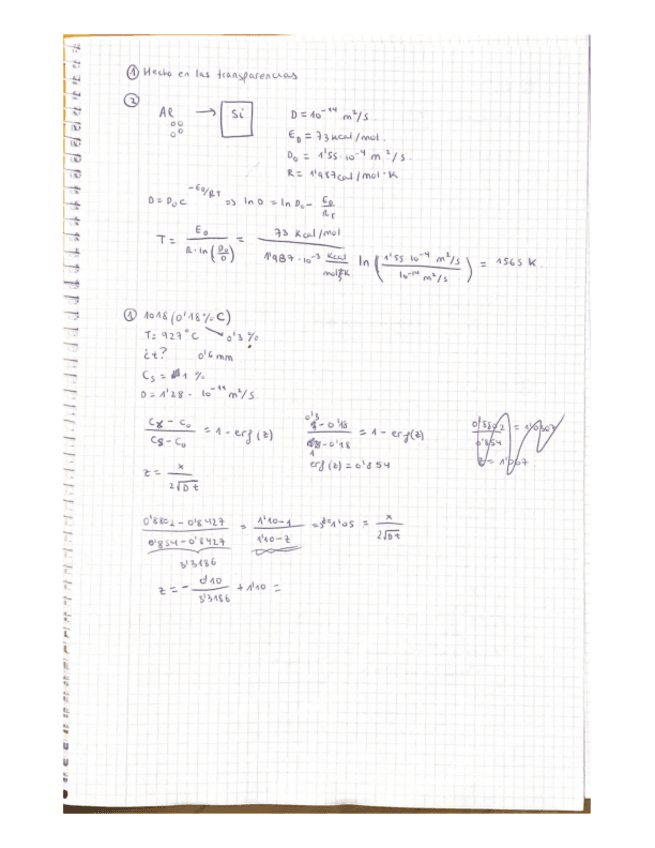 ① Hecho en las transparencias
②
Al → Si
D = 10^-14 m²/s
E_D = 73 kcal/mol.
D_0 = 1'55·10^-4 m²/s.
R = 1'987 cal/mol·K
D = D_0 e^(-E_D/RT) => ln D = ln D_0 - E_D/RT
T = E_D / (R·ln(D_0/D)) = 73 Kcal/mol / (1'987·10^-3 Kcal/mol·K ln(1'55·10^-4 m²/s / 10^-14 m²/s)) = 1565 K.
① 1018 (0'18% C)
T = 927°C → 0'3 %
¿t? 0'6 mm
C_s = 1 %
D = 1'28 · 10^-11 m²/s
(C_x - C_0)/(C_s - C_0) = 1 - erf(z)
(0'3 - 0'18)/(1 - 0'18) = 1 - erf(z)
erf(z) = 0'854
z = x/(2√Dt)
(0'8802 - 0'8427)/(0'854 - 0'8427) = (1'10 - 1)/(1'10 - z) => z = 1'05 = x/(2√Dt)
3'3186
z = - 0'10/3'3186 + 1'10 =